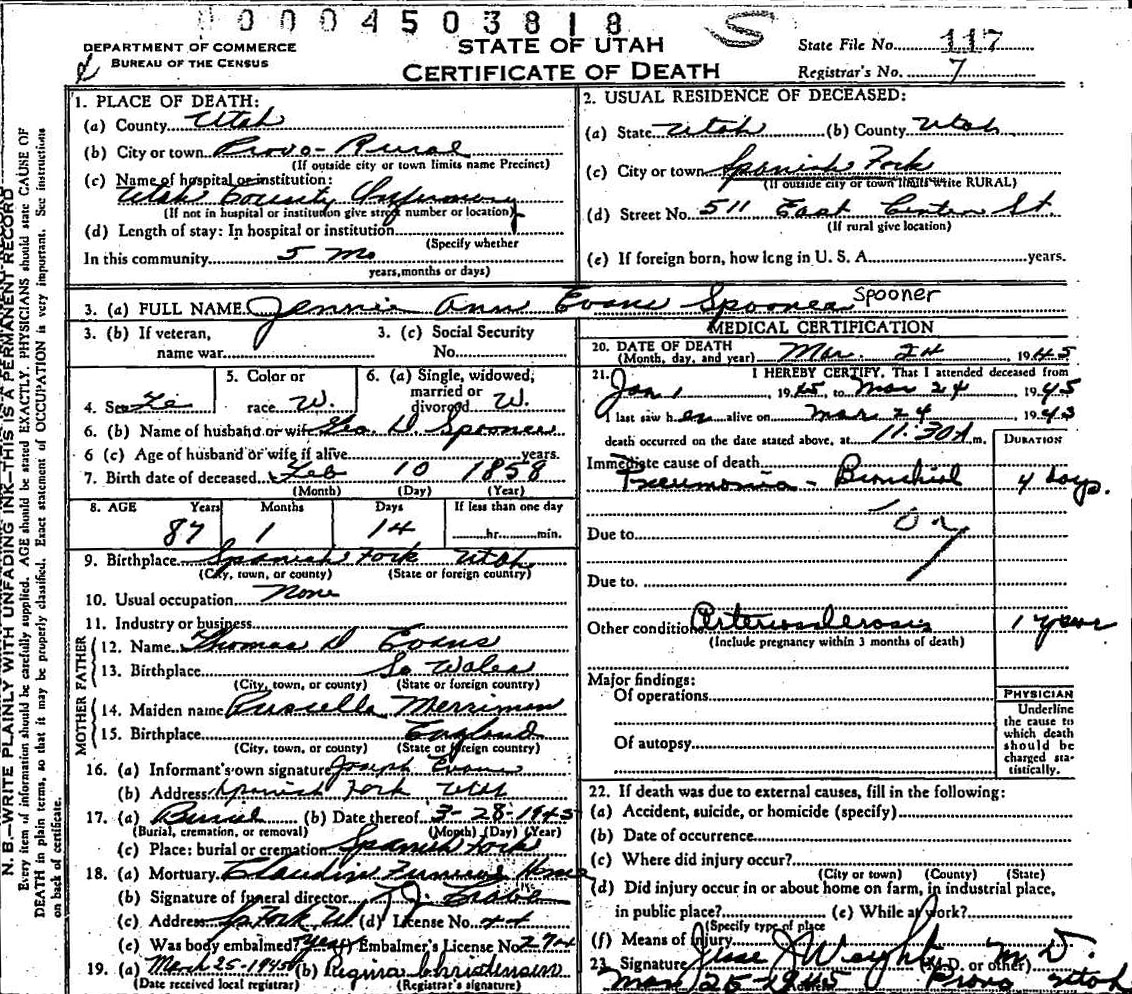 0004503818 S
DEPARTMENT OF COMMERCE
BUREAU OF THE CENSUS
STATE OF UTAH
CERTIFICATE OF DEATH
State File No. 117
Registrar's No. 7
N. B.—WRITE PLAINLY WITH UNFADING INK—THIS IS A PERMANENT RECORD
Every item of information should be carefully supplied. AGE should be stated EXACTLY. PHYSICIANS should state CAUSE OF
DEATH in plain terms, so that it may be properly classified. Exact statement of OCCUPATION is very important. See instruction
on back of certificate.
1. PLACE OF DEATH:
(a) County Utah
(b) City or town Provo - Rural
(If outside city or town limits name Precinct)
(c) Name of hospital or institution:
Utah County Infirmary
(If not in hospital or institution give street number or location)
(d) Length of stay: In hospital or institution
(Specify whether
In this community 5 mo
years, months or days)
2. USUAL RESIDENCE OF DECEASED:
(a) State Utah (b) County Utah
(c) City or town Spanish Fork
(If outside city or town limits write RURAL)
(d) Street No. 511 East Center St
(If rural give location)
(e) If foreign born, how long in U. S. A. years.
3. (a) FULL NAME Jennie Ann Evans Spooner Spooner
3. (b) If veteran, 3. (c) Social Security
name war No.
4. Sex Fe
5. Color or
race W.
6. (a) Single, widowed,
married or
divorced W.
6. (b) Name of husband or wife Geo. D. Spooner
6 (c) Age of husband or wife if alive years.
7. Birth date of deceased Feb 10 1858
(Month) (Day) (Year)
8. AGE Years Months Days If less than one day
87 1 14 hr. min.
9. Birthplace Spanish Fork Utah
(City, town, or county) (State or foreign country)
10. Usual occupation None
11. Industry or business
FATHER
12. Name Thomas D Evans
13. Birthplace So Wales
(City, town, or county) (State or foreign country)
MOTHER
14. Maiden name Priscilla Merriman
15. Birthplace England
(City, town, or county) (State or foreign country)
16. (a) Informant's own signature Joseph Evans
(b) Address Spanish Fork Utah
17. (a) Burial (b) Date thereof 3-28-1945
(Burial, cremation, or removal) (Month) (Day) (Year)
(c) Place: burial or cremation Spanish Fork
18. (a) Mortuary Claudin Funeral Home
(b) Signature of funeral director
(c) Address Sp Fork U. (d) License No. 44
(e) Was body embalmed? yes (f) Embalmer's License No. 274
19. (a) March 25-1945 (b) Regina Christensen
(Date received local registrar) (Registrar's signature)
MEDICAL CERTIFICATION
20. DATE OF DEATH
(Month, day, and year) Mar. 24, 1945
21. I HEREBY CERTIFY, That I attended deceased from
Jan 1, 1945, to Mar 24, 1945
I last saw her alive on Mar 24, 1945
death occurred on the date stated above, at 11:30 A.m.
DURATION
Immediate cause of death
Pneumonia - Bronchial 4 days.
107
Due to
Due to
Other condition Arteriosclerosis 1 year
(Include pregnancy within 3 months of death)
Major findings:
Of operations
Of autopsy
PHYSICIAN
Underline
the cause to
which death
should be
charged sta-
tistically.
22. If death was due to external causes, fill in the following:
(a) Accident, suicide, or homicide (specify)
(b) Date of occurrence
(c) Where did injury occur?
(City or town) (County) (State)
(d) Did injury occur in or about home on farm, in industrial place,
in public place? (e) While at work?
(Specify type of place
(f) Means of injury
23. Signature Jesse J Weight M.D. (M.D. or other)
Mar 25-1945 Address Provo Utah